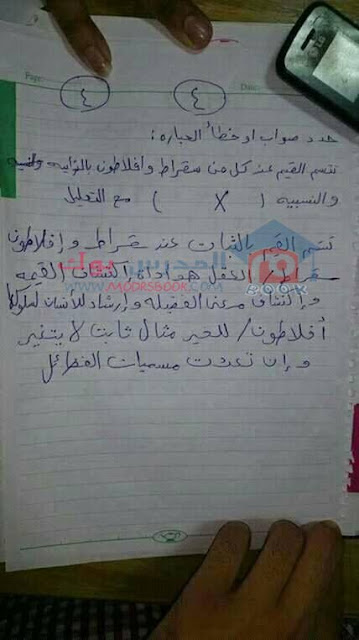 Page: Date:
٤ ٤
حدد صواب او خطأ العباره :
تتسم القيم عند كل من سقراط وأفلاطون بالذاتيه
والنسبيه ( X ) مع التعليل
تتسم القيم بالثبات عند سقراط وإفلاطون
سقراط / العقل هو اداة إكتشاف القيمه
وإكتشاف معنى الفضيله وإرشاد للأنسان لسلوكها
أفلاطون / للخير مثال ثابت لا يتغير
وإن تعددت مسميات الفضائل
المدرس بوك
WWW.MODRSBOOK.COM
BOOK